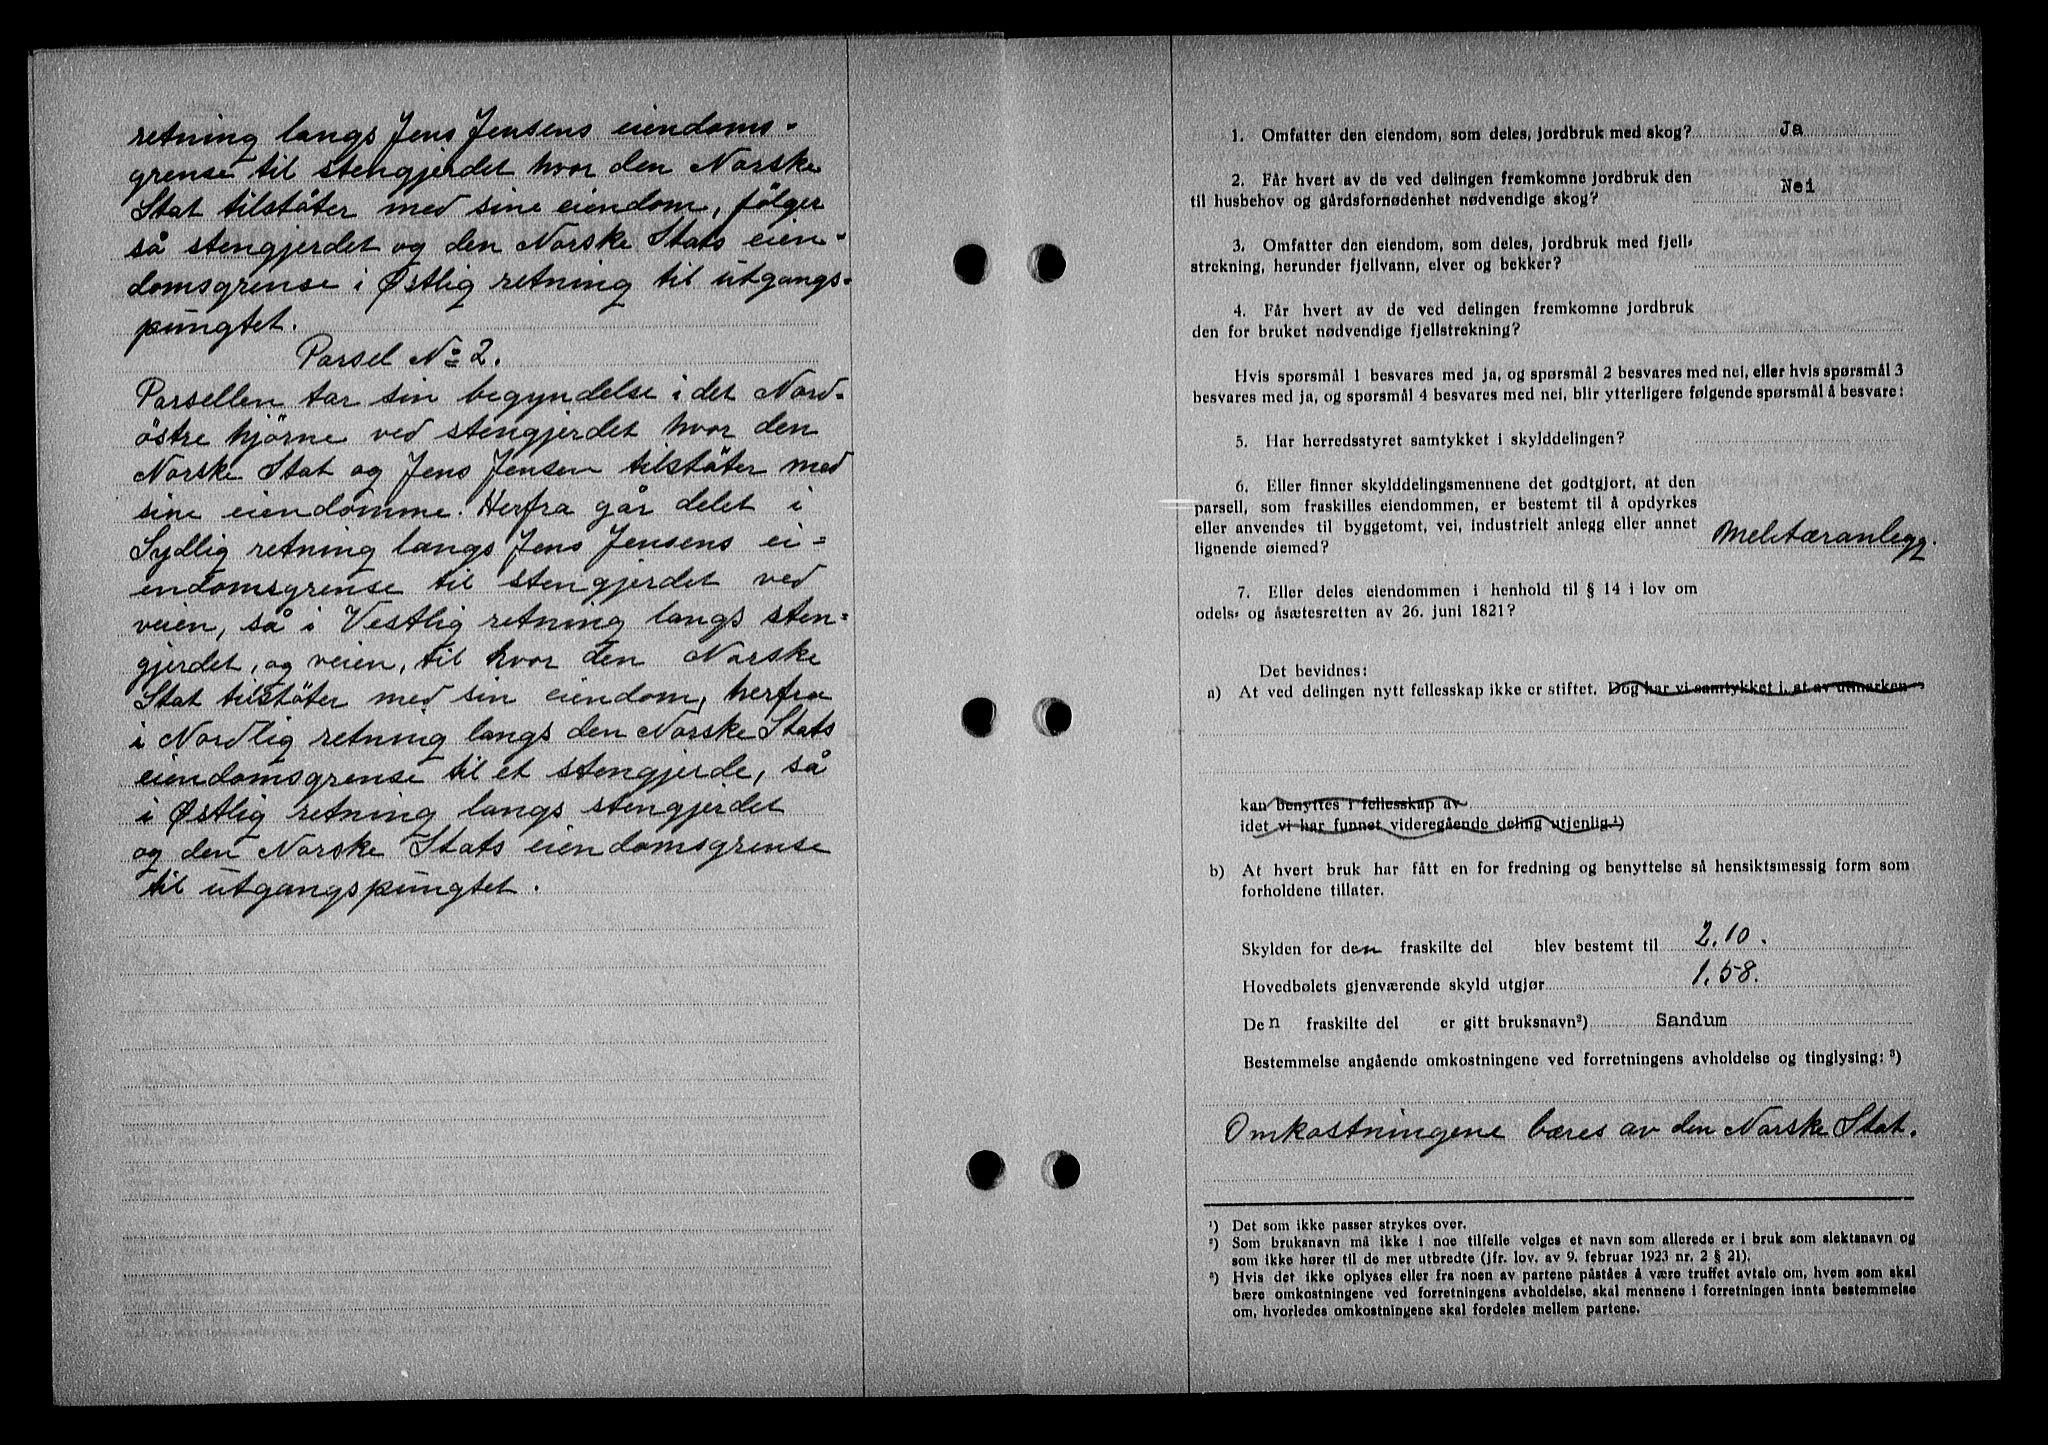 retning langs Jens Jensens eiendoms-
grense til stengjerdet hvor den Norske
Stat tilstöter med sine eiendom, fölger
så stengjerdet og den Norske Stats eien-
domsgrense i Østlig retning til utgangs-
pungtet.
Parsel No 2.
Parsellen tar sin begyndelse i det Nord-
östre hjörne ved stengjerdet hvor den
Norske Stat og Jens Jensen tilstöter med
sine eiendomme. Herfra går delet i
Sydlig retning langs Jens Jensens ei=
endomsgrense til stengjerdet ved
veien, så i Vestlig retning langs sten=
gjerdet, og veien, til hvor den Norske
Stat tilstöter med sin eiendom, herfra
i Nordlig retning langs den Norske Stats
eiendomsgrense til et stengjerde, så
i Østlig retning langs stengjerdet
og den Norske Stats eiendomsgrense
til utgangspungtet.
1. Omfatter den eiendom, som deles, jordbruk med skog? Ja
2. Får hvert av de ved delingen fremkomne jordbruk den
til husbehov og gårdsfornødenhet nødvendige skog? Nei
3. Omfatter den eiendom, som deles, jordbruk med fjell-
strekning, herunder fjellvann, elver og bekker?
4. Får hvert av de ved delingen fremkomne jordbruk
den for bruket nødvendige fjellstrekning?
Hvis spørsmål 1 besvares med ja, og spørsmål 2 besvares med nei, eller hvis spørsmål 3
besvares med ja, og spørsmål 4 besvares med nei, blir ytterligere følgende spørsmål å besvare:
5. Har herredsstyret samtykket i skylddelingen?
6. Eller finner skylddelingsmennene det godtgjort, at den
parsell, som fraskilles eiendommen, er bestemt til å opdyrkes
eller anvendes til byggetomt, vei, industrielt anlegg eller annet
lignende øiemed? Melitæranlegg.
7. Eller deles eiendommen i henhold til § 14 i lov om
odels- og åsætesretten av 26. juni 1821?
Det bevidnes:
a) At ved delingen nytt fellesskap ikke er stiftet. Dog har vi samtykket i, at av utmarken
kan benyttes i fellesskap av
idet vi har funnet videregående deling utjenlig.¹)
b) At hvert bruk har fått en for fredning og benyttelse så hensiktsmessig form som
forholdene tillater.
Skylden for den fraskilte del blev bestemt til 2.10.
Hovedbølets gjenværende skyld utgjør 1.58.
Den fraskilte del er gitt bruksnavn²) Sandum
Bestemmelse angående omkostningene ved forretningens avholdelse og tinglysing: ³)
Omkostningene bæres av den Norske Stat.
¹) Det som ikke passer strykes over.
²) Som bruksnavn må ikke i noe tilfelle velges et navn som allerede er i bruk som slektsnavn og
som ikke hører til de mer utbredte (jfr. lov. av 9. februar 1923 nr. 2 § 21).
³) Hvis det ikke oplyses eller fra noen av partene påståes å være truffet avtale om, hvem som skal
bære omkostningene ved forretningens avholdelse, skal mennene i forretningen innta bestemmelse
om, hvorledes omkostningene skal fordeles mellem partene.